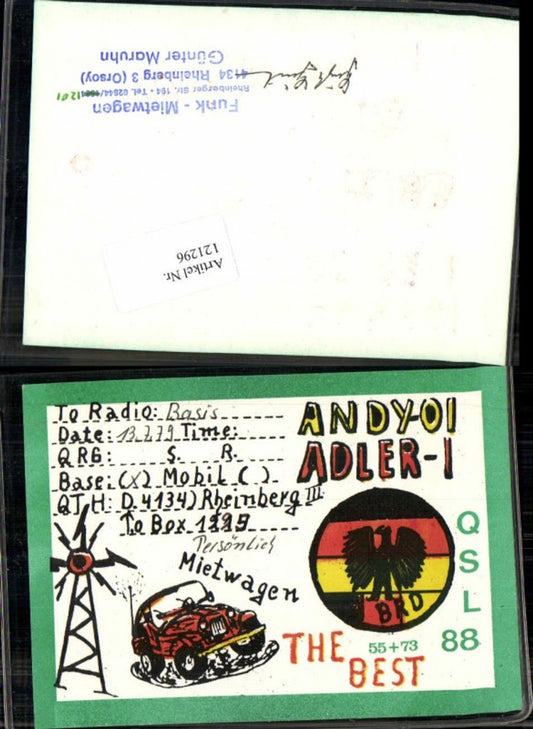 Funk - Mietwagen
Rheinberger Str. 194 - Tel. 02844/1201
4134 Rheinberg 3 (Orsoy)
Günter Maruhn
Artikel Nr.
121296
To Radio: Basis
Date: 13.7.79 Time:
QRG: S. R.
Base: (X) Mobil ( )
QTH: D.4134) Rheinberg III
To Box
Persönlich
Mietwagen
ANDY-01
ADLER-1
BRD
QSL
55+73 88
THE
BEST